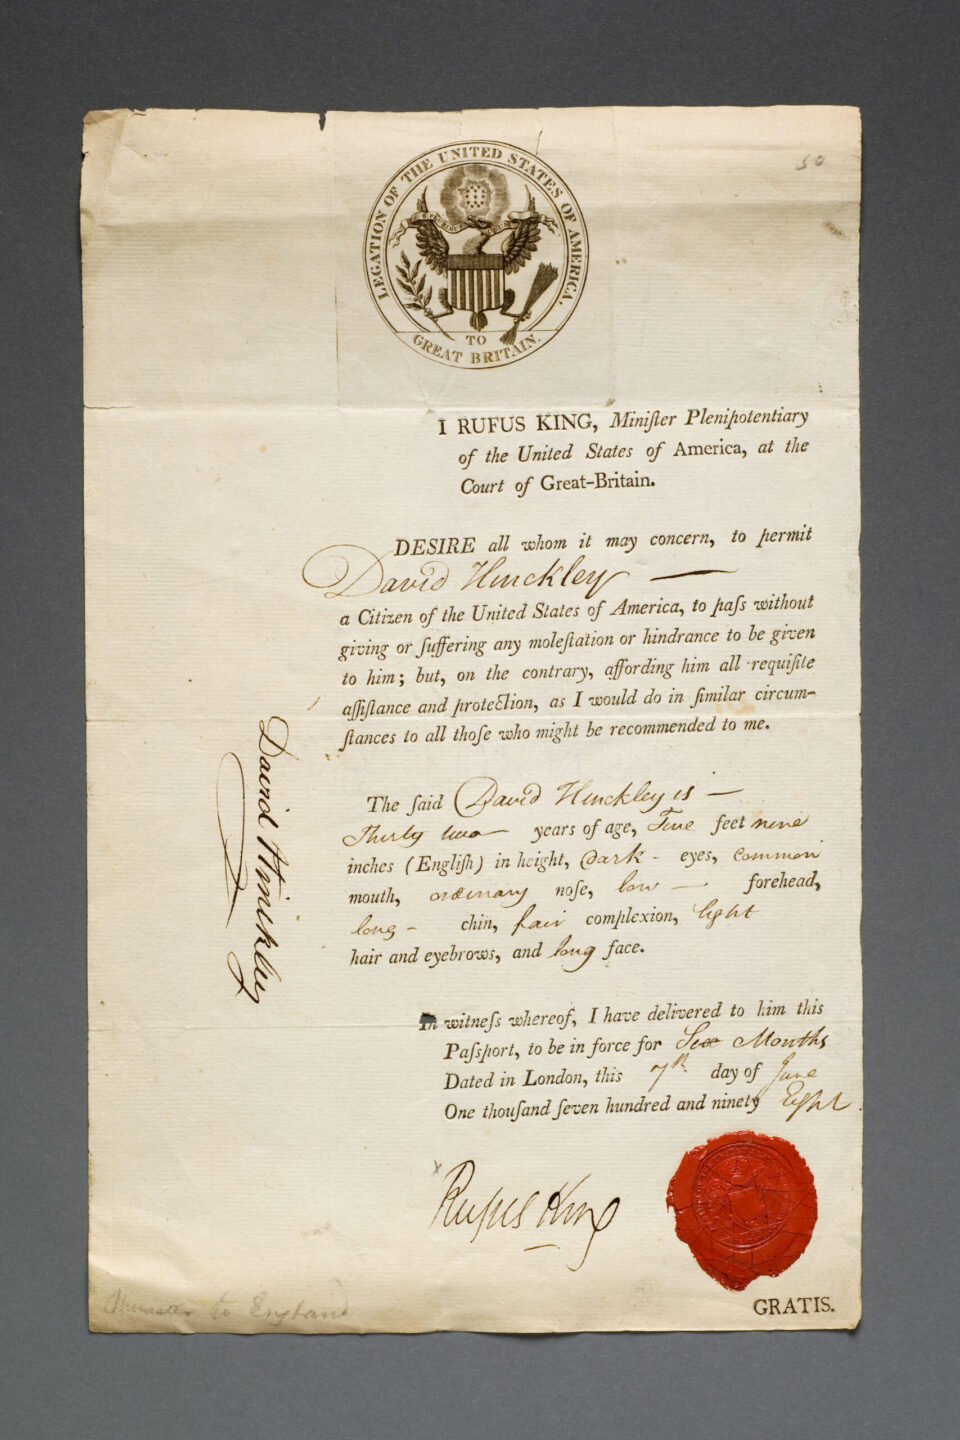 50
LEGATION OF THE UNITED STATES OF AMERICA,
TO
GREAT BRITAIN.
I RUFUS KING, Miniſter Plenipotentiary
of the United States of America, at the
Court of Great-Britain.
DESIRE all whom it may concern, to permit
David Hinckley
a Citizen of the United States of America, to paſs without
giving or ſuffering any moleſtation or hindrance to be given
to him; but, on the contrary, affording him all requiſite
aſſiſtance and protection, as I would do in ſimilar circum-
ſtances to all thoſe who might be recommended to me.
David Hinckley
The ſaid David Hinckley is —
Thirty two — years of age, Five feet nine
inches (Engliſh) in height, Dark - eyes, common
mouth, ordinary noſe, low — forehead,
long - chin, fair complexion, light
hair and eyebrows, and long face.
In witneſs whereof, I have delivered to him this
Paſſport, to be in force for Six Months
Dated in London, this 7th day of June
One thouſand ſeven hundred and ninety Eight.
x
Rufus King
GRATIS.
to England